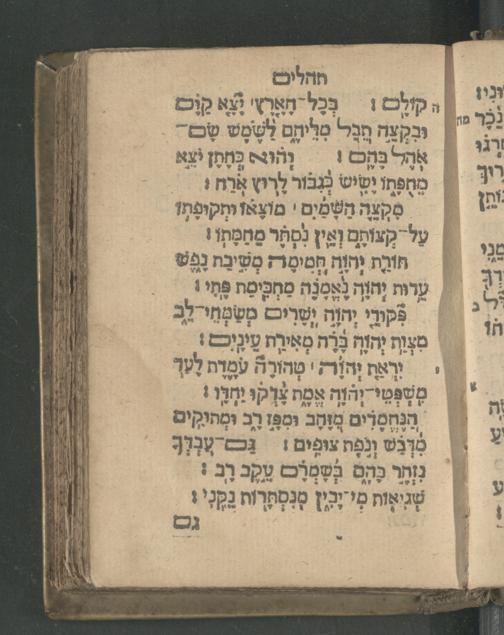 תהלים
ה קולם׃ בְּכָל־הָאָרֶץ יָצָא קַוָּם
וּבִקְצֵה תֵבֵל מִלֵּיהֶם לַשֶּׁמֶשׁ שָׂם־
אֹהֶל בָּהֶם׃ וְהוּא כְּחָתָן יֹצֵא
מֵחֻפָּתוֹ יָשִׂישׂ כְּגִבּוֹר לָרוּץ אֹרַח׃
מִקְצֵה הַשָּׁמַיִם ׀ מוֹצָאוֹ וּתְקוּפָתוֹ
עַל־קְצוֹתָם וְאֵין נִסְתָּר מֵחַמָּתוֹ׃
תּוֹרַת יְהוָה תְּמִימָה מְשִׁיבַת נָפֶשׁ
עֵדוּת יְהוָה נֶאֱמָנָה מַחְכִּימַת פֶּתִי׃
פִּקּוּדֵי יְהוָה יְשָׁרִים מְשַׂמְּחֵי־לֵב
מִצְוַת יְהוָה בָּרָה מְאִירַת עֵינָיִם׃
יִרְאַת יְהוָה ׀ טְהוֹרָה עוֹמֶדֶת לָעַד
מִשְׁפְּטֵי־יְהוָה אֱמֶת צָדְקוּ יַחְדָּו׃
הַנֶּחֱמָדִים מִזָּהָב וּמִפַּז רָב וּמְתוּקִים
מִדְּבַשׁ וְנֹפֶת צוּפִים׃ גַּם־עַבְדְּךָ
נִזְהָר בָּהֶם בְּשָׁמְרָם עֵקֶב רָב׃
שְׁגִיאוֹת מִי־יָבִין מִנִּסְתָּרוֹת נַקֵּנִי׃
גם